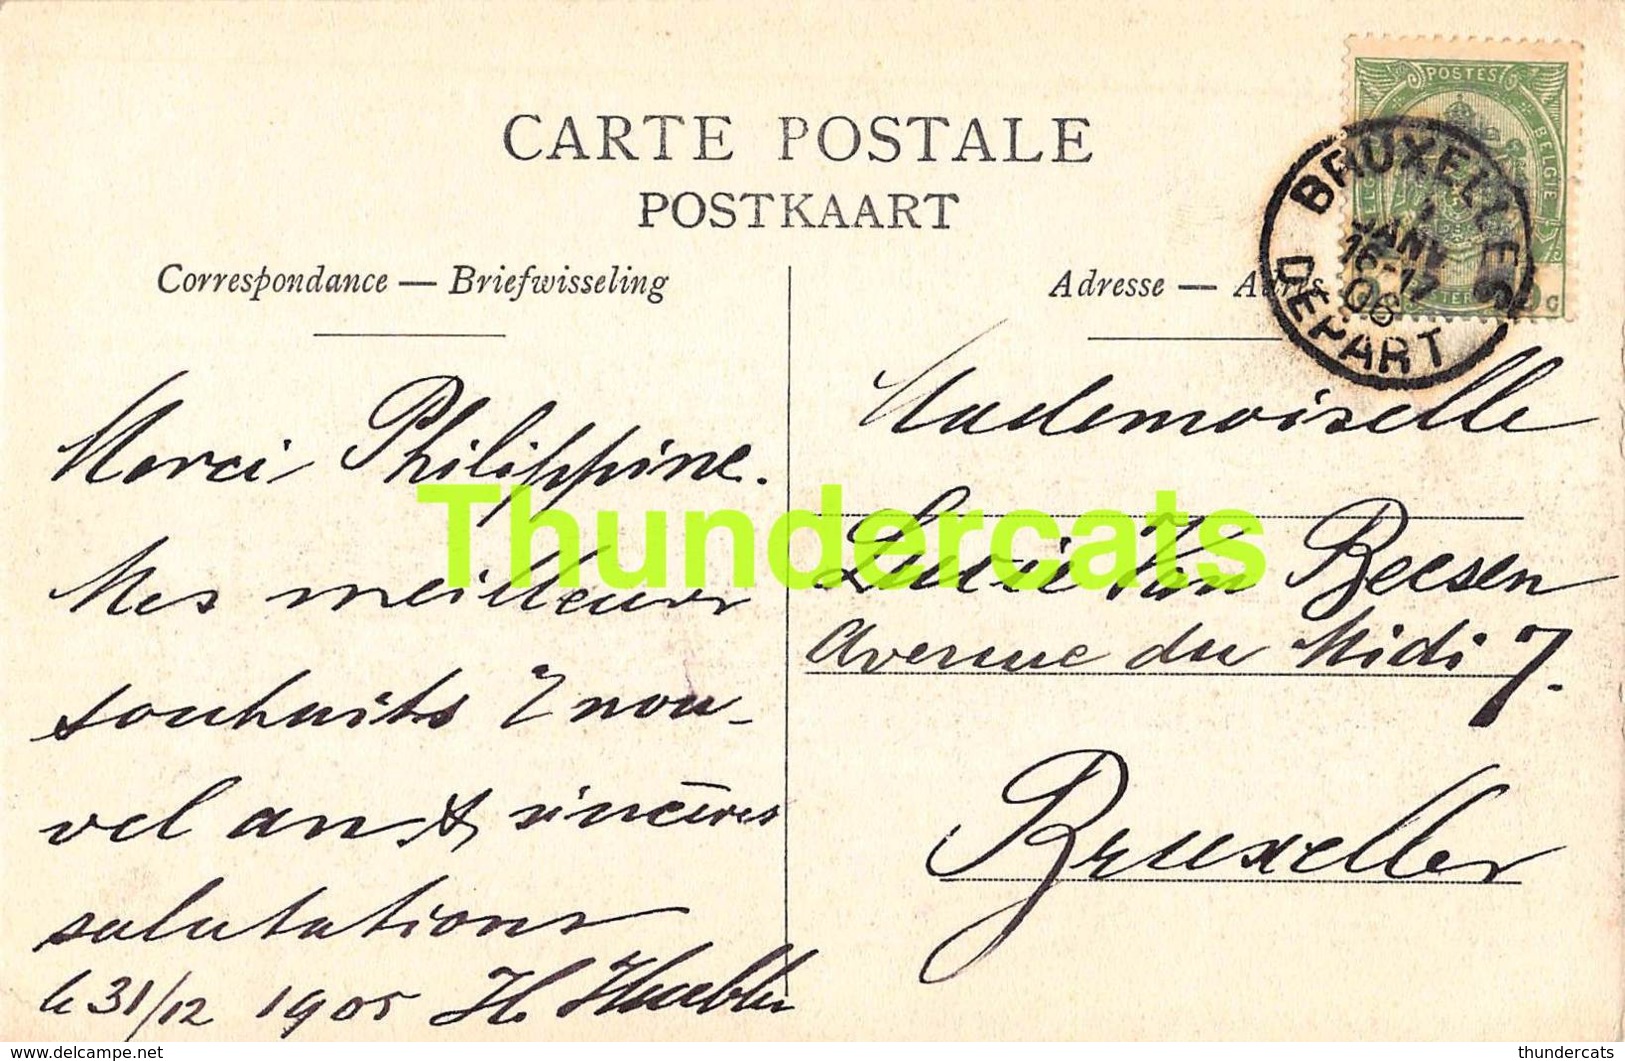 CARTE POSTALE
POSTKAART
Correspondance — Briefwisseling
Adresse — Adres
POSTES
BELGIE
BRUXELLES
1
JANV
16-17
06
DEPART
Merci Philippine.
Mes meilleurs
souhaits d nou-
vel an & sincères
salutations
le 31/12 1905 H.
Mademoiselle
Lucie Van Beesen
Avenue du Midi 7.
Bruxelles
Thundercats
www.delcampe.net
thundercats